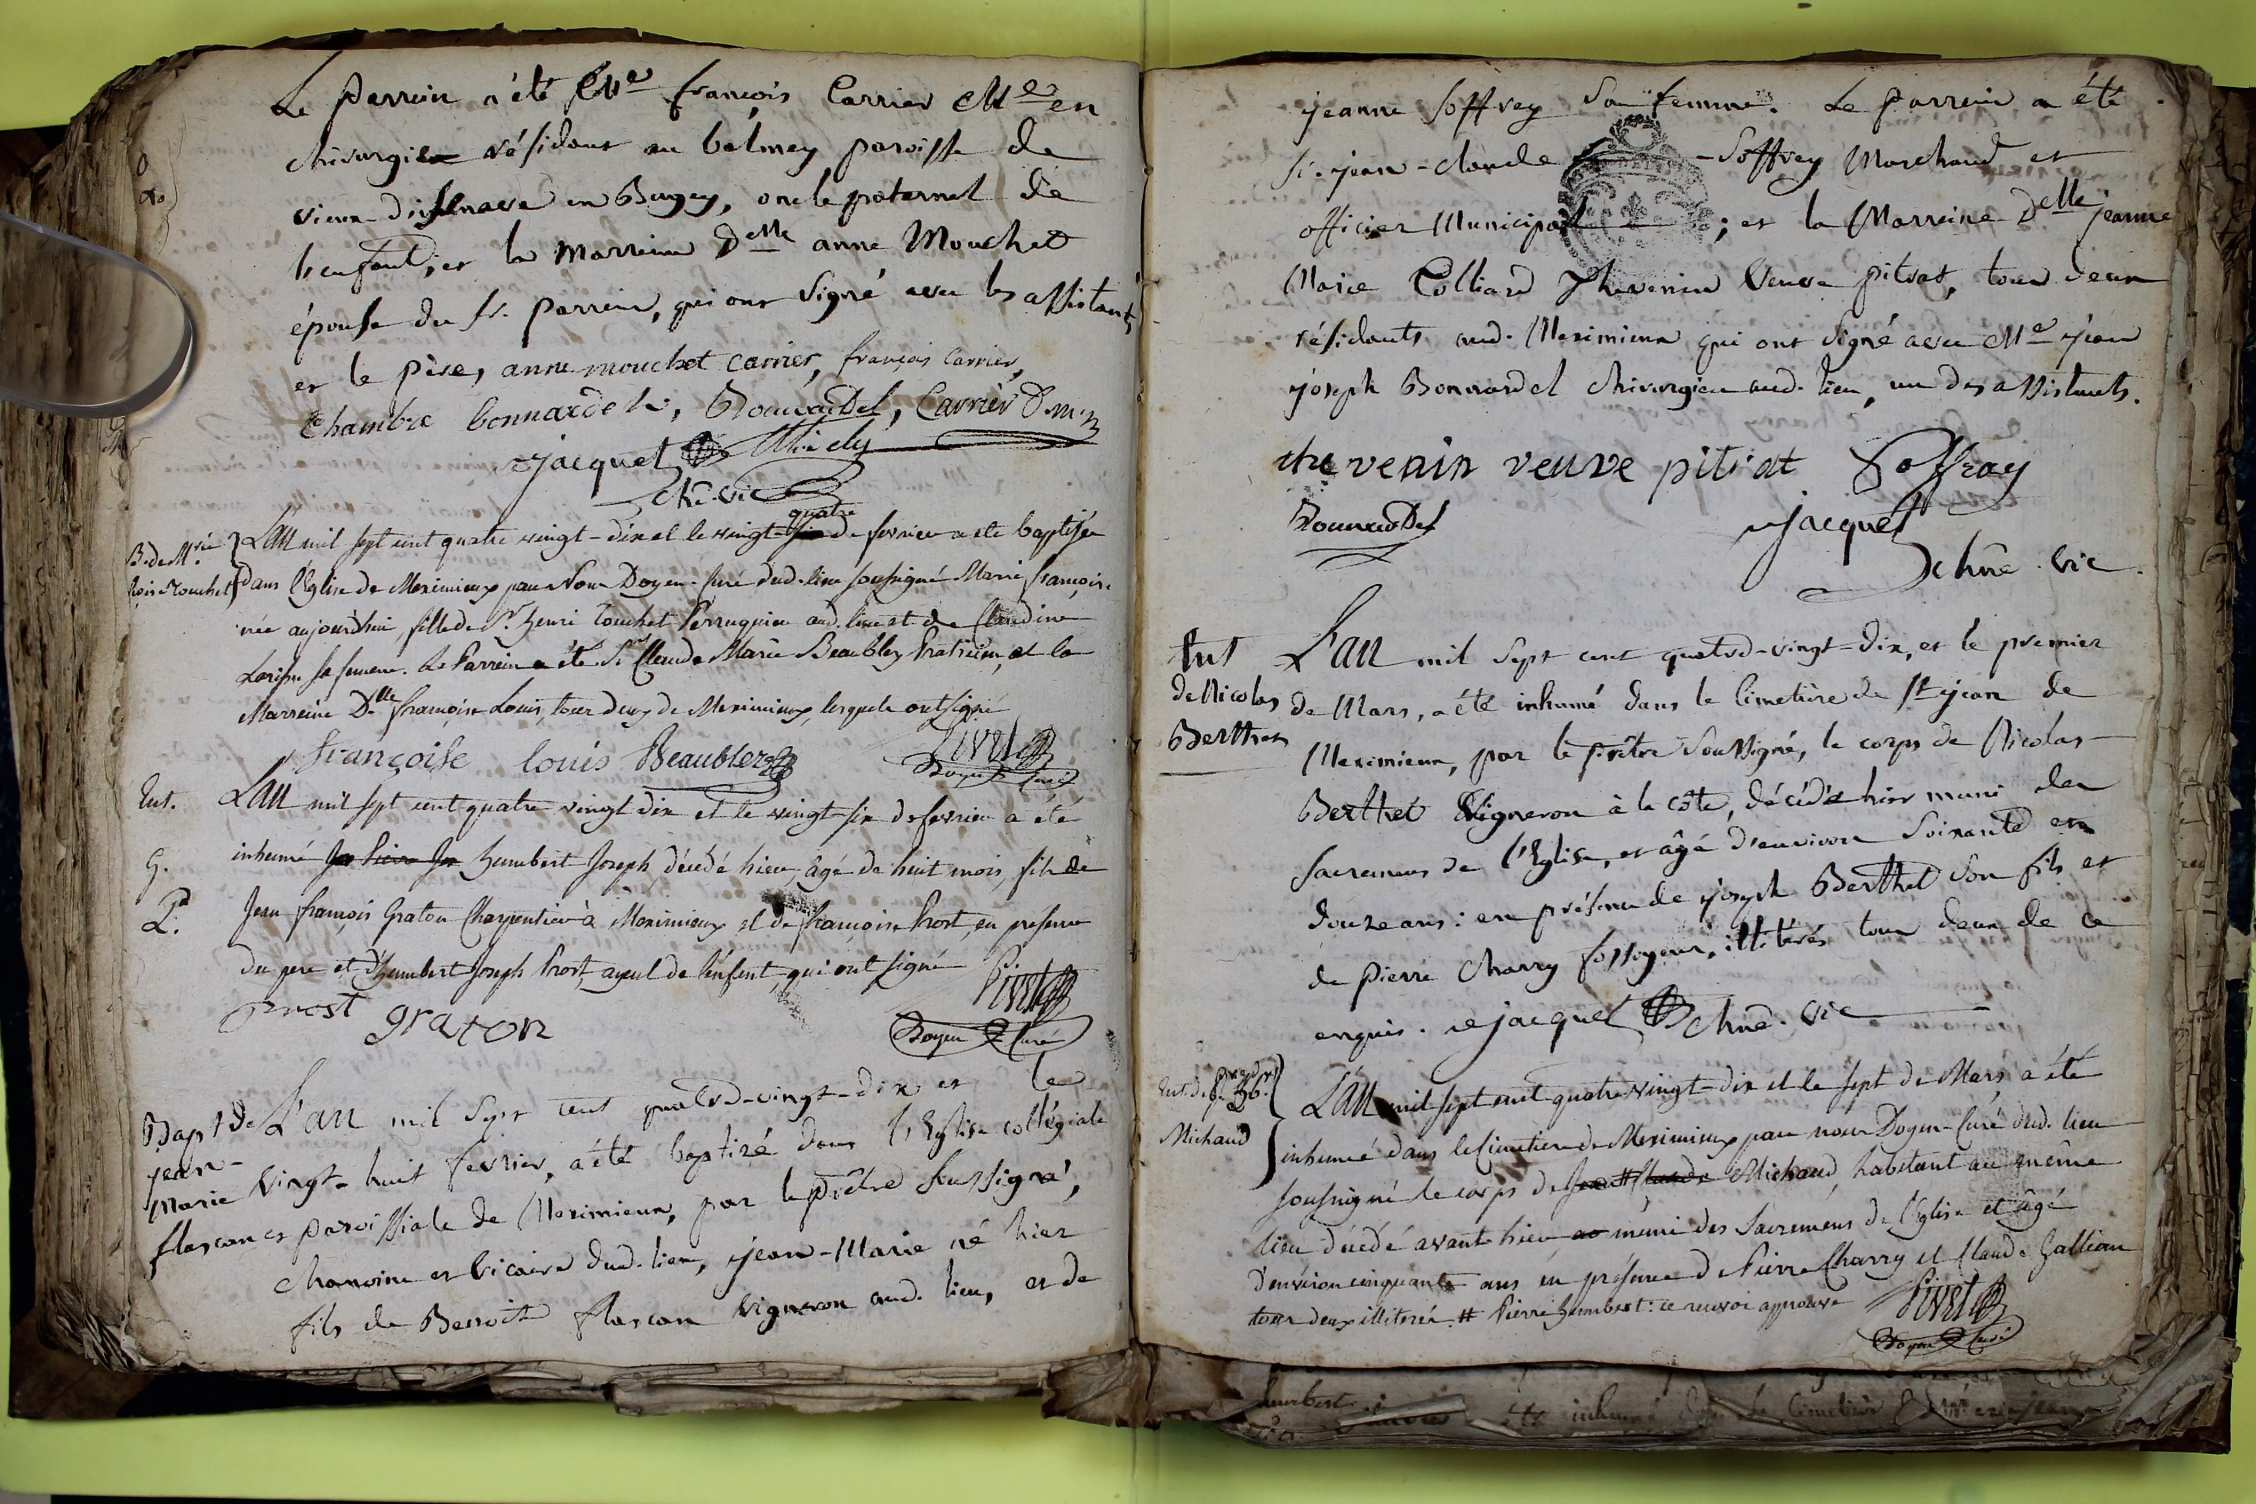 Le Parrein a été Me françois Carrier Me en
chirurgie résidant au balmey paroisse de
vieux d'isenave en Bugey, oncle paternel de
l'enfant; et la marreine Delle anne Mouchet
épouse du sr. Parrein, qui ont signé avec les assistants
et le père, anne mouchet carrier, françois Carrier,
Chambre bonnardel, Bonnardel, Carrier D.m.
Jacquet
chne. vic
B. de M.rie
L'an mil sept cent quatre vingt-dix et le vingt quatre de fevrier a ete baptisée
dans l'Eglise de Meximieux par Nous Doyen-Curé dud. lieu soussigné Marie françoise
née aujourdhui, fille de Sr. henri Touchet Perruquier aud. lieu et de Claudine
sa femme. Le Parrein a été Sr. Claude Marie Beaublez Praticien, et la
Marreine Dlle. françoise Louis, tous deux de Meximieux, lesquels ont signé
françoise louis Beaublez Livet
Doyen Curé
Ent.
G.
P.
L'an mil sept cent quatre vingt dix et le vingt-six de fevrier a été
inhumé humbert Joseph, décédé hier, âgé de huit mois, fils de
Jean françois Graton Charpentier à Meximieux et de françoise Prost, en presence
du pere et d'humbert Joseph Prost, ayeul de l'enfant, qui ont signé
Prost graton Livet
Doyen Curé
Bapt de
jean-
Marie
flascon
L'an mil sept cent quatre-vingt-dix et le
vingt-huit fevrier, a été baptisé dans l'Eglise collégiale
et paroissiale de Meximieux, par le prêtre soussigné,
chanoine et vicaire dud. lieu, jean-Marie né hier
fils de Benoit flascon vigneron aud. lieu, et de
jeanne Soffrey sa femme. Le parrein a été
sr. jean-claude Soffrey Marchand et
officier Municipal; et la Marreine Delle jeanne
Marie Colliard Thevenin veuve pitrat, tous deux
résidants aud. Meximieux qui ont signé avec Me jean
joseph Bonnardel chirurgien aud. lieu, un des assistants.
thevenin veuve pitrat Soffray
Bonnardel Jacquet
chne. vic.
Ent
de Nicolas
Berthet
L'an mil sept cent quatre-vingt-dix, et le premier
de Mars, a été inhumé dans le Cimetière de St jean de
Meximieux, par le prêtre soussigné, le corps de Nicolas
Berthet Vigneron à la côte, décédé hier muni des
sacremens de l'Eglise, et âgé d'environ soixante et
douze ans: en présence de joseph Berthet son fils et
de pierre Charry fossoyeur, illitérés tous deux de ce
enquis. Jacquet chne. vic
Ent. de
Michaud
L'an mil sept cent quatre vingt-dix et le sept de Mars a été
inhumé dans le Cimetiere de Meximieux par nous Doyen-Curé dud. lieu
soussigné le corps de Michaud, habitant au même
lieu décédé avant-hier, muni des Sacremens de l'Eglise et âgé
d'environ cinquante ans en présence de Pierre Charry et Claude Gallien
tous deux illiterés. # Pierre humbert: ce renvoi approuvé Livet
Doyen Curé